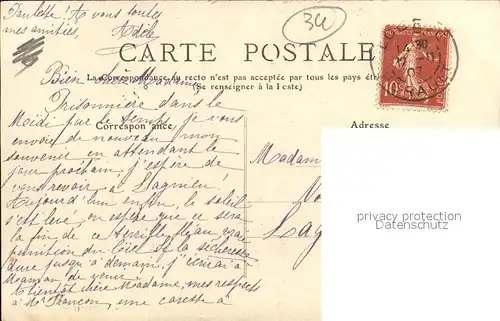 Paulette! A vous toutes
mes amitiés, Adèle
34
CARTE POSTALE
La Correspondance au recto n'est pas acceptée par tous les pays étr
(Se renseigner à la Poste)
Bien chère Madame
Prisonnière dans le
Midi par le temps, je vous
envoie de nouveau mon
souvenir en attendant le
jour prochain, j'espère de
vous revoir à Lagnieu
Aujourd'hui enfin, le soleil
s'est levé, on espère que ce sera
la fin de ce terrible fléau, vraie
punition du Ciel. Si la sécheresse
dure jusqu'à demain, j'écrirai à
Maman de venir.
A bientôt chère Madame, mes respects
à Mr Françon, une caresse à
Correspondance
Adresse
Madam
Lag
privacy protection
Datenschutz
10